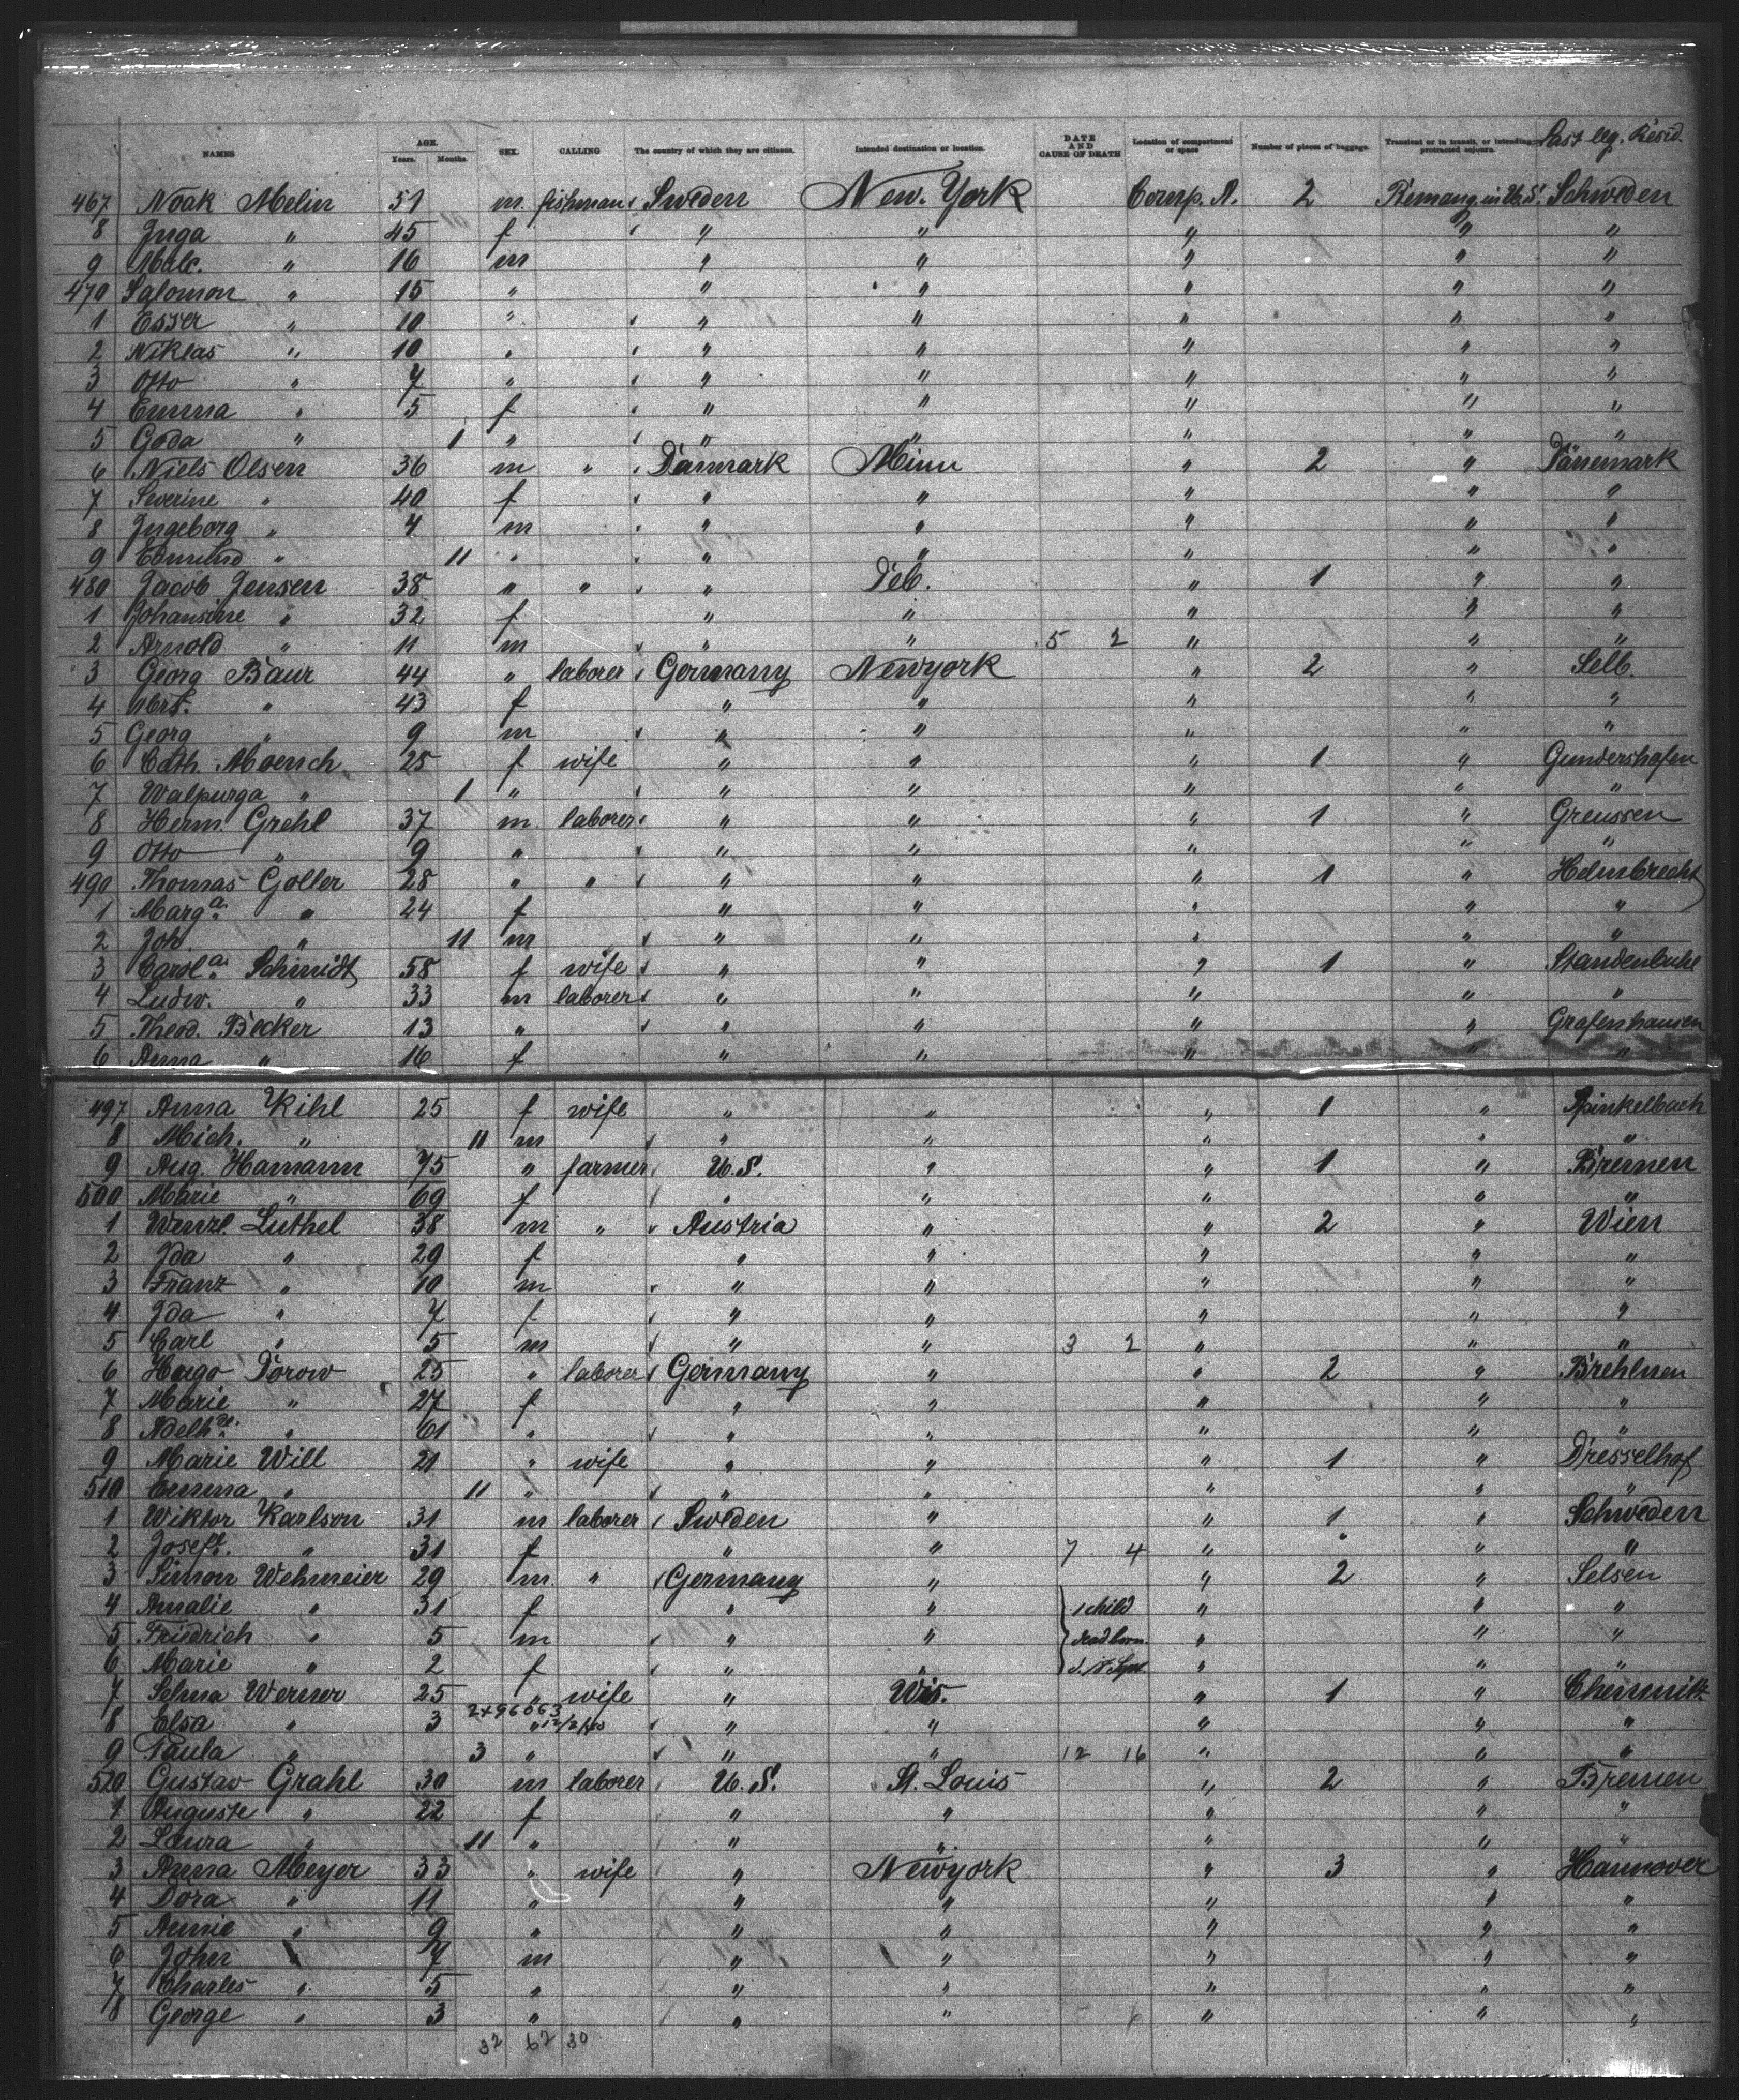 NAMES AGE. Years. Months. SEX. CALLING The country of which they are citizens. Intended destination or location. DATE AND CAUSE OF DEATH Location of compartment or space Number of pieces of baggage. Transient or in transit, or intending protracted sojourn. Last leg. Resid.
467 Noak Melin 51 m. fisherman Sweden New. York Comp. A. 2 Schweden
8 Inga " 45 f " " " " "
9 " 16 m " " " " "
470 Salomon " 15 " " " " " "
1 Esser " 10 " " " " " "
2 Niklas " 10 " " " " " "
3 Otto " 7 " " " " " "
4 Emma " 5 f " " " " "
5 Goda " 1 " " " " " "
6 Niels Olsen 36 m " Danmark Minn " 2 " Dänemark
7 Severine " 40 f " " " " "
8 Ingeborg " 4 m " " " " "
9 Edmund " 11 " " " " " "
480 Jacob Jensen 38 " " " " 1 " "
1 Johansine " 32 f " " " " "
2 Arnold " 11 m " " 5 2 " " "
3 Georg Baur 44 " laborer Germany Newyork " 2 " Selb.
4 " 43 f " " " " "
5 Georg " 9 m " " " " "
6 Cath. Moench 25 f wife " " " 1 " Gundershofen
7 Walpurga " 1 " " " " " "
8 Herm. Grehl 37 m laborer " " " 1 " Greussen
9 Otto " 9 " " " " " "
490 Thomas Goller 28 " " " " " 1 " Helmbrecht
1 Marga. " 24 f " " " " "
2 Joh. " 11 m " " " " "
3 Carola. Schmidt 58 f wife " " " 1 " Standenbuhl
4 Ludw. " 33 m laborer " " " " "
5 Theod. Becker 13 " " " " " Grafenhausen
6 Anna " 16 f " " " " "
497 Anna Kihl 25 f wife " " " 1 "
8 Mich. " 11 m " " " " "
9 Aug. Hamann 75 " farmer U.S. " " 1 " Bremen
500 Marie " 69 f " " " " "
1 Wenzl. Luthel 38 m " Austria " " 2 " Wien
2 Ida " 29 f " " " " "
3 Franz " 10 m " " " " "
4 Ida " 7 f " " " " "
5 Carl " 5 m " " 3 2 " " "
6 Hugo Dorow 25 " laborer Germany " " 2 " Brehlnen
7 Marie " 27 f " " " " "
8 Adelhde. " 61 " " " " " "
9 Marie Will 21 " wife " " " 1 " Dresselhof
510 Emma " 11 " " " " " "
1 Wiktor Karlson 31 m laborer Sweden " " 1 " Schweden
2 " 31 f " " 7 4 " " " "
3 Simon Wehmeier 29 m. " Germany " " 2 " Selsen
4 Amalie " 31 f " " 1 child " " "
5 Friedrich " 5 m " " dead born " " "
6 Marie " 2 f " " " " "
7 Selma Werner 25 " wife " Wis. " 1 " Chemnitz
8 Elsa " 3 2x96063 " " " " " "
9 Paula " 3 " " " 12 16 " " "
520 Gustav Grahl 30 m laborer U.S. St. Louis " 2 " Bremen
1 Auguste " 22 f " " " " "
2 Laura " 11 " " " " " "
3 Anna Meyer 33 " wife " Newyork " 3 " Hannover
4 Dora " 11 " " " " " "
5 Annie " 9 " " " " " "
6 7 m " " " " "
7 Charles " 5 " " " " " "
8 George " 3 " " " 6 " " "
32 62 30